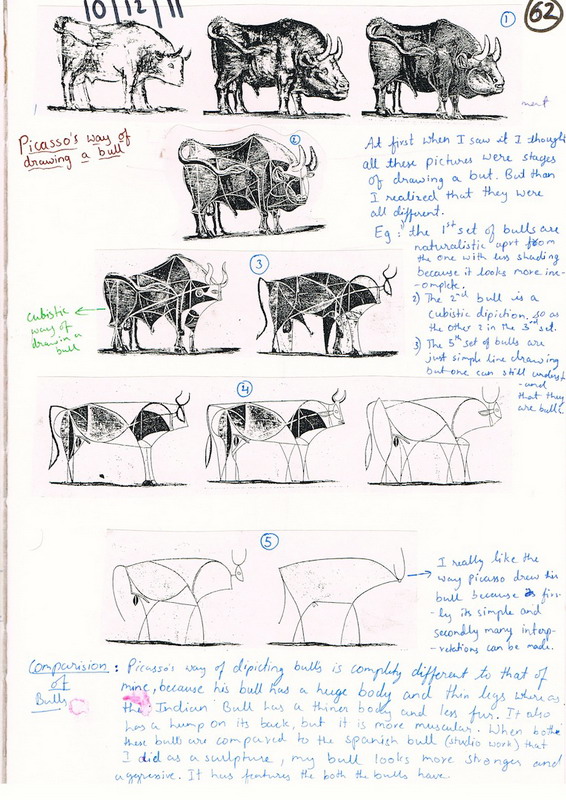 10/12/11
62
①
Picasso's way of
drawing a bull
②
At first when I saw it I thought
all these pictures were stages
of drawing a but. But than
I realized that they were
all different.
Eg: the 1st set of bulls are
naturalistic aprt from
the one with less shading
because it looks more inc-
-omplete.
2) The 2nd bull is a
cubistic dipiction. so as
the other 2 in the 3rd set.
3) The 5th set of bulls are
just simple line drawing
but one can still underst
-and
that they
are bulls.
③
cubistic
way of
drawin a
bull
④
⑤
I really like the
way picasso drew his
bull because firs-
-ly its simple and
secondly many interp-
-retations can be made.
Comparision : Picasso's way of dipicting bulls is complety different to that of
of
Bulls
mine, because his bull has a huge body and thin legs where as
the Indian Bull has a thiner body and less fur. It also
has a hump on its back, but it is more muscular. When both
these bulls are compared to the spanish bull (studio work) that
I did as a sculpture, my bull looks more stronger and
aggressive. It has features the both the bulls have.